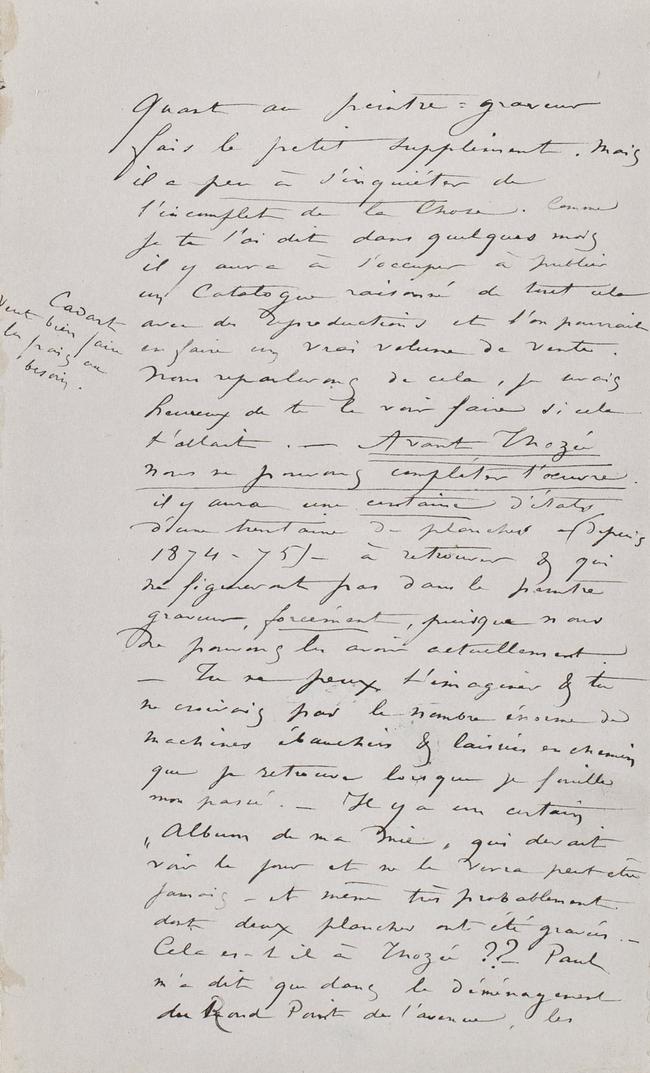 Quant au peintre-graveur
fais le petit supplément. Mais
il a peu à s'inquiéter de
l'incomplet de la Chose. Comme
je te l'ai dit dans quelques mois
il y aura à s'occuper à publier
un Catalogue raisonné de tout cela
avec des reproductions et l'on pourrait
en faire un vrai volume de vente.
Nous reparlerons de cela, je serais
heureux de te le voir faire si cela
t'allait. — Avant Thozée
nous ne pouvons compléter l'œuvre.
il y aura une certaine d'états
d'une trentaine de planches – (depuis
1874-75) – à retrouver & qui
ne figureront pas dans le peintre
graveur, forcément, puisque nous
ne pouvons les avoir actuellement.
— Tu ne peux t'imaginer & tu
ne croirais pas le nombre énorme de
machines ébauchées & laissées en chemin
que je retrouve lorsque je fouille
mon passé. — Il y a un certain
„Album de ma Mie„ qui devait
voir le jour et ne le verra peut être
jamais – et même très probablement
dont deux planches ont été gravées. —
Cela es-t il à Thozée ?? Paul
m'a dit que dans le déménagement
du Rond Point de l'avenue, les
Cadart
veut bien faire
les frais au
besoin.